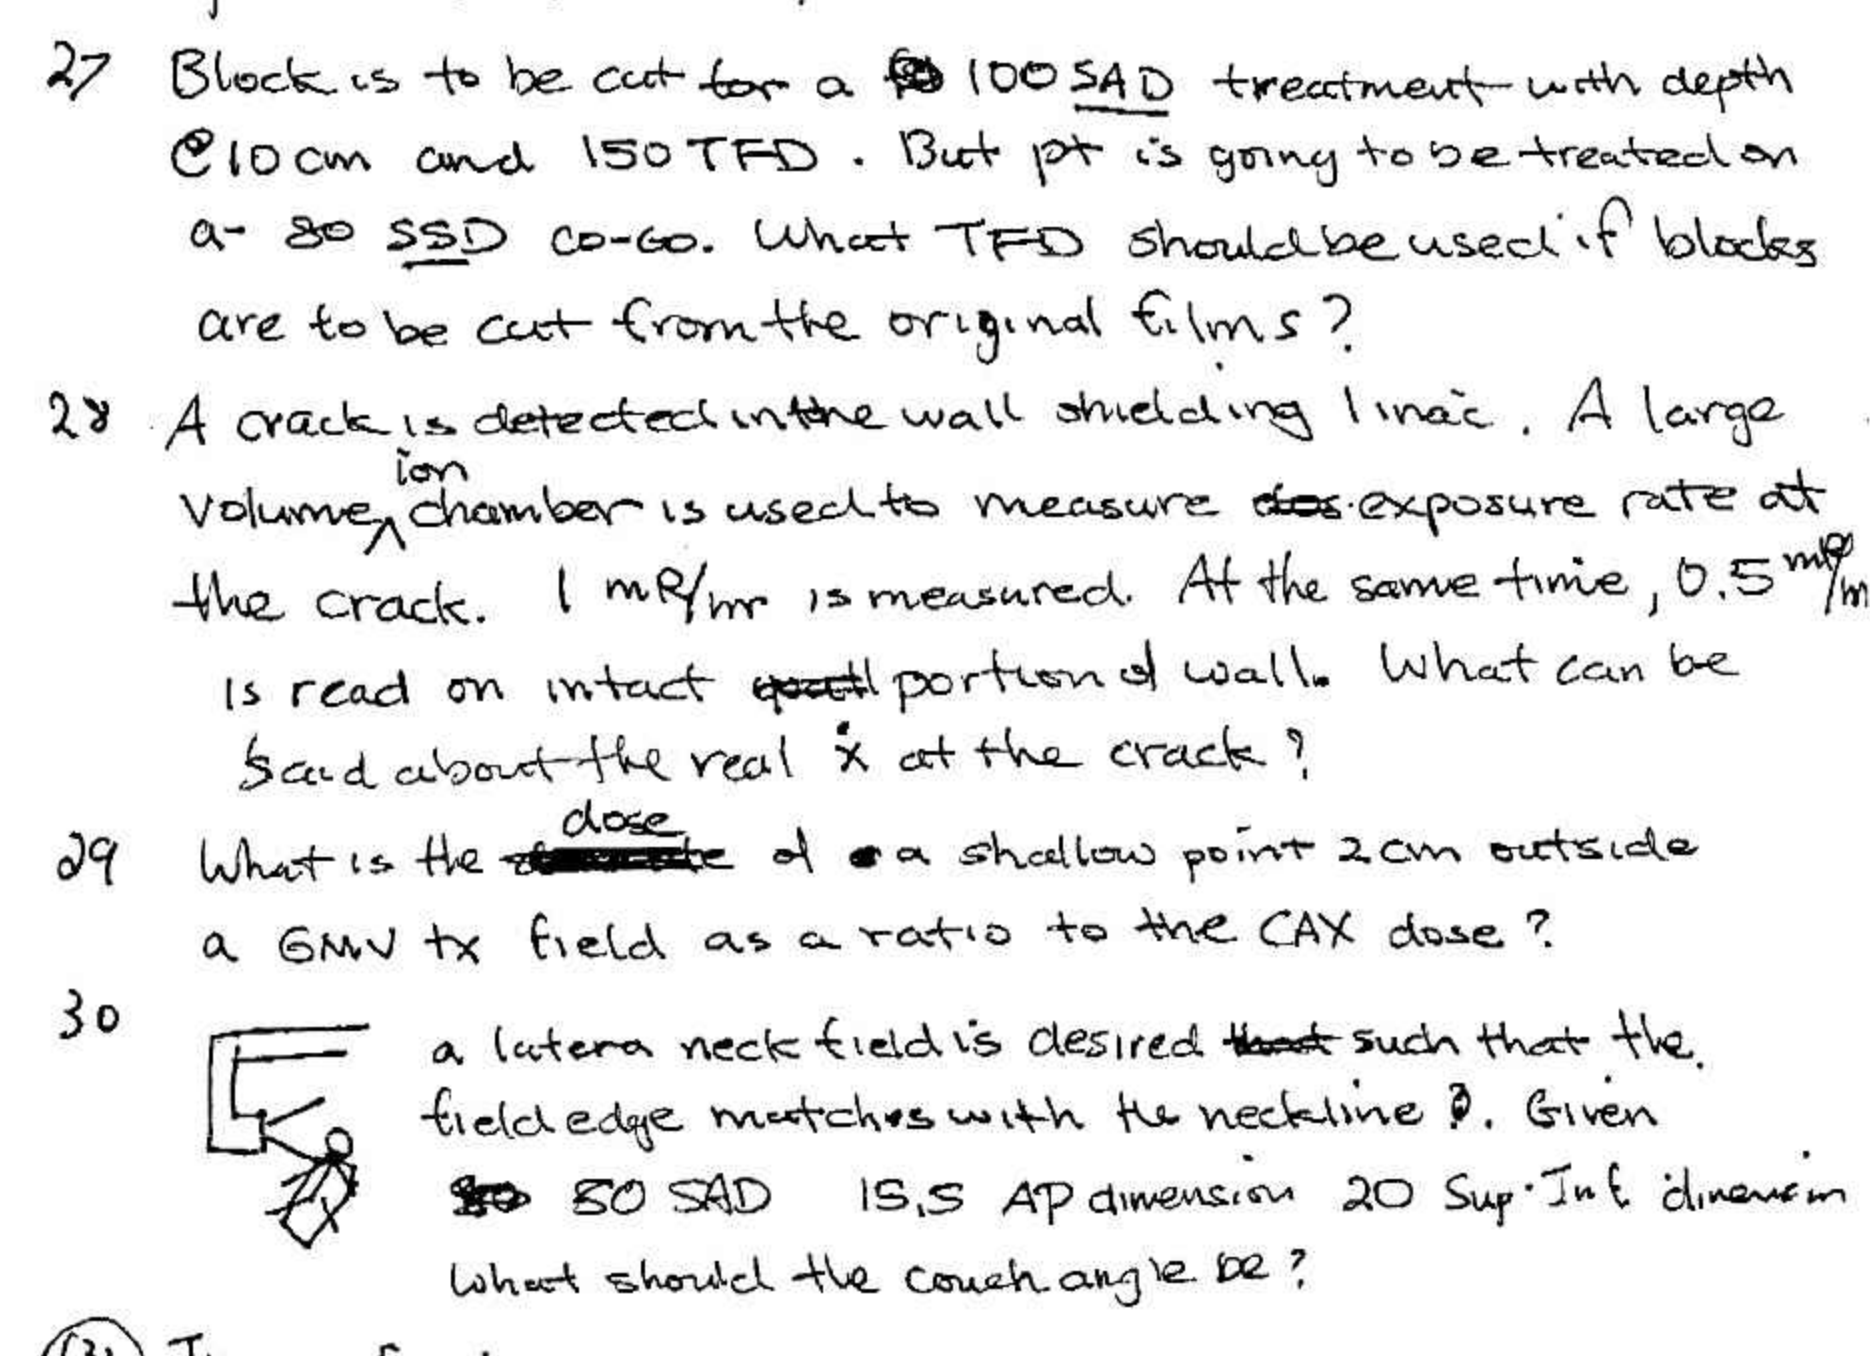 27 Block is to be cut for a 100 SAD treatment with depth
@10 cm and 150 TFD. But pt is going to be treated on
a- 80 SSD CO-60. What TFD should be used if blocks
are to be cut from the original films?
28 A crack is detected in the wall shielding linac. A large
volume ion chamber is used to measure exposure rate at
the crack. 1 mR/hr is measured. At the same time, 0.5 mR/
is read on intact portion of wall. What can be
said about the real ẋ at the crack?
29 What is the dose of a shallow point 2 cm outside
a 6MV tx field as a ratio to the CAX dose?
30 a latera neck field is desired such that the
field edge matches with the neckline. Given
80 SAD 15.5 AP dimension 20 Sup. Inf. dimension
What should the couch angle be?